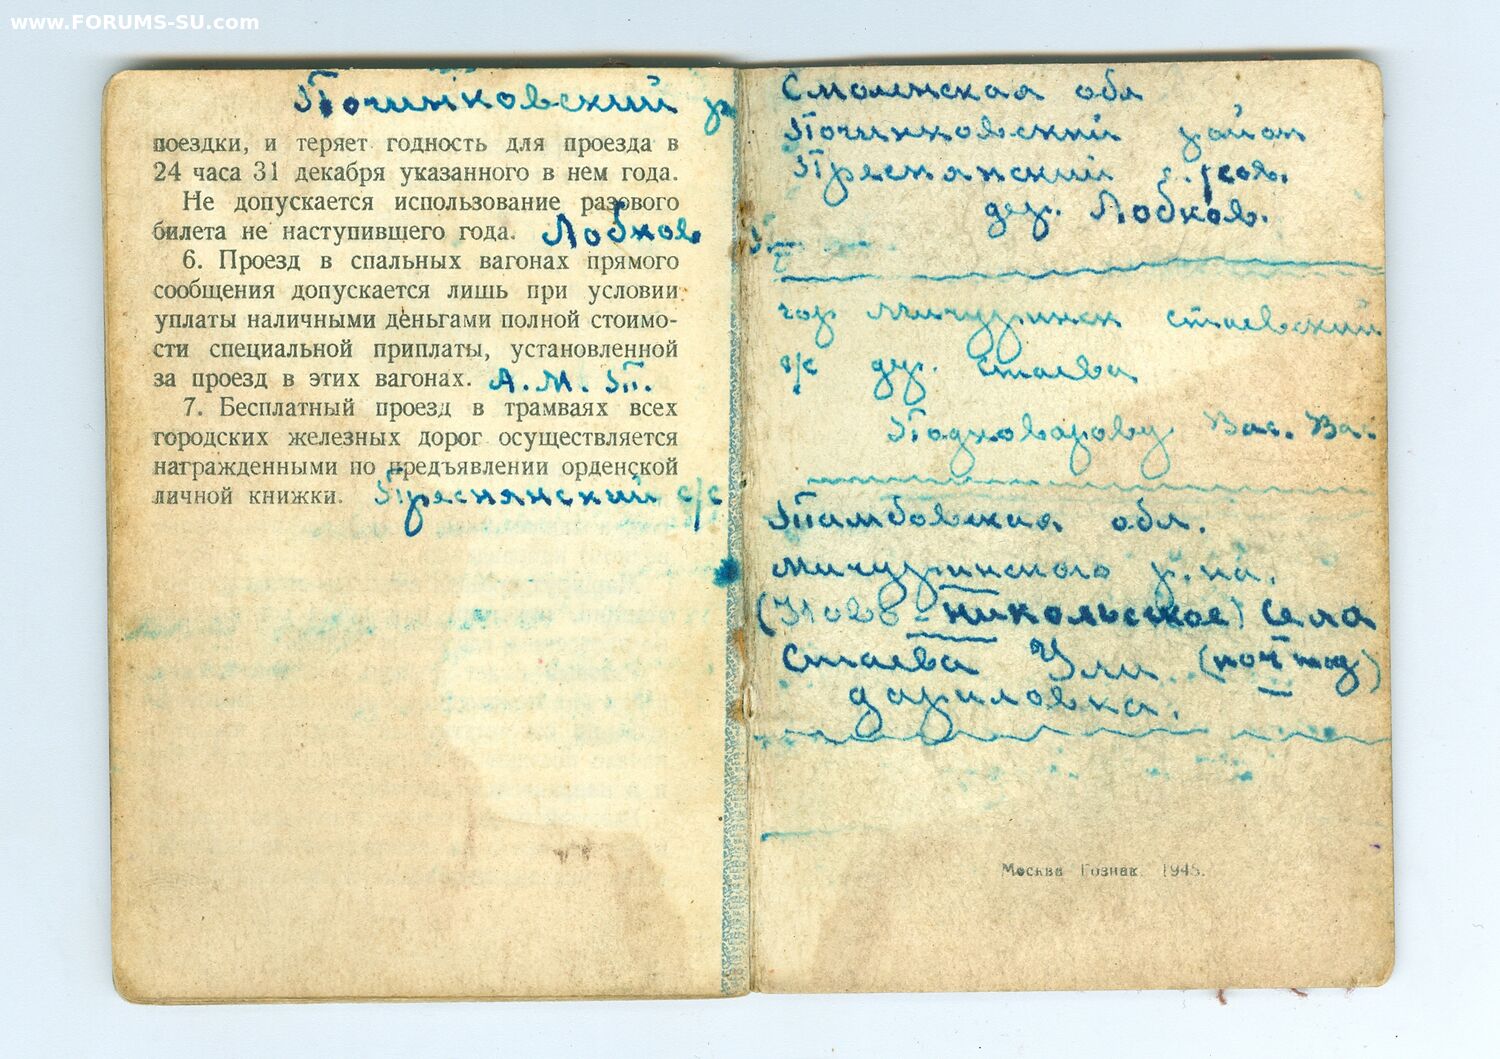 www.FORUMS-SU.com
Починковский
поездки, и теряет годность для проезда в
24 часа 31 декабря указанного в нем года.
Не допускается использование разового
билета не наступившего года. Лобков
6. Проезд в спальных вагонах прямого
сообщения допускается лишь при условии
уплаты наличными деньгами полной стоимо-
сти специальной приплаты, установленной
за проезд в этих вагонах. А. М. П.
7. Бесплатный проезд в трамваях всех
городских железных дорог осуществляется
награжденными по предъявлении орденской
личной книжки. Преснянский с/с
Смоленская обл
Починковский район
Преснянский
дер. Лобков.
гор Мичуринск стаевский
с/с дер. Стаева
Подноварову Вас. Вас.
Тамбовская обл.
Мичуринского р.на.
(Ново-никольское) села
Стаева Ули
дариловка.
Москва Гознак 1945.